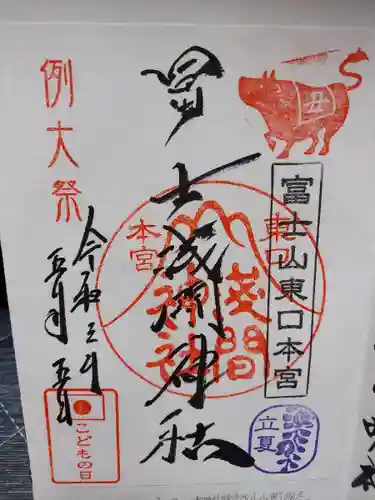 丑
富士山東口本宮
冨士浅間神社
東口
本宮
浅間
神社
例大祭
令和三年
五月五日
こどもの日
立夏